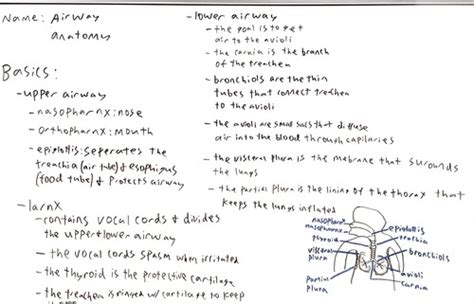 Name: Airway
anatomy
Basics:
-upper airway
-nasopharnx:nose
-orthopharnx:mouth
-epiglottis:seperates the
trachia(air tube) & esophigus
(food tube) & Protects airway
-larnx
-contains vocal cords & divides
the upper & lower airway
- the vocal cords spasm when irritated
-the thyroid is the protective cartilage
-the trachea is ringed w/cartilage to keep
-lower airway
-the goal is to get
air to the avioli
-the carnia is the branch
of the treachea
-bronchiols are the thin
tubes that connect treachea
to the avioli
-the avioli are small sacs that diffuse
air into the blood through capilaries
-the visceral plura is the mebrane that surounds
the lungs
-the partial plura is the lining of the thorax that
keeps the lungs inflated
nasopharnx
thyroid
visceral
plura
partial
plura
epiglottis
trachia
bronchiols
avioli
carnia